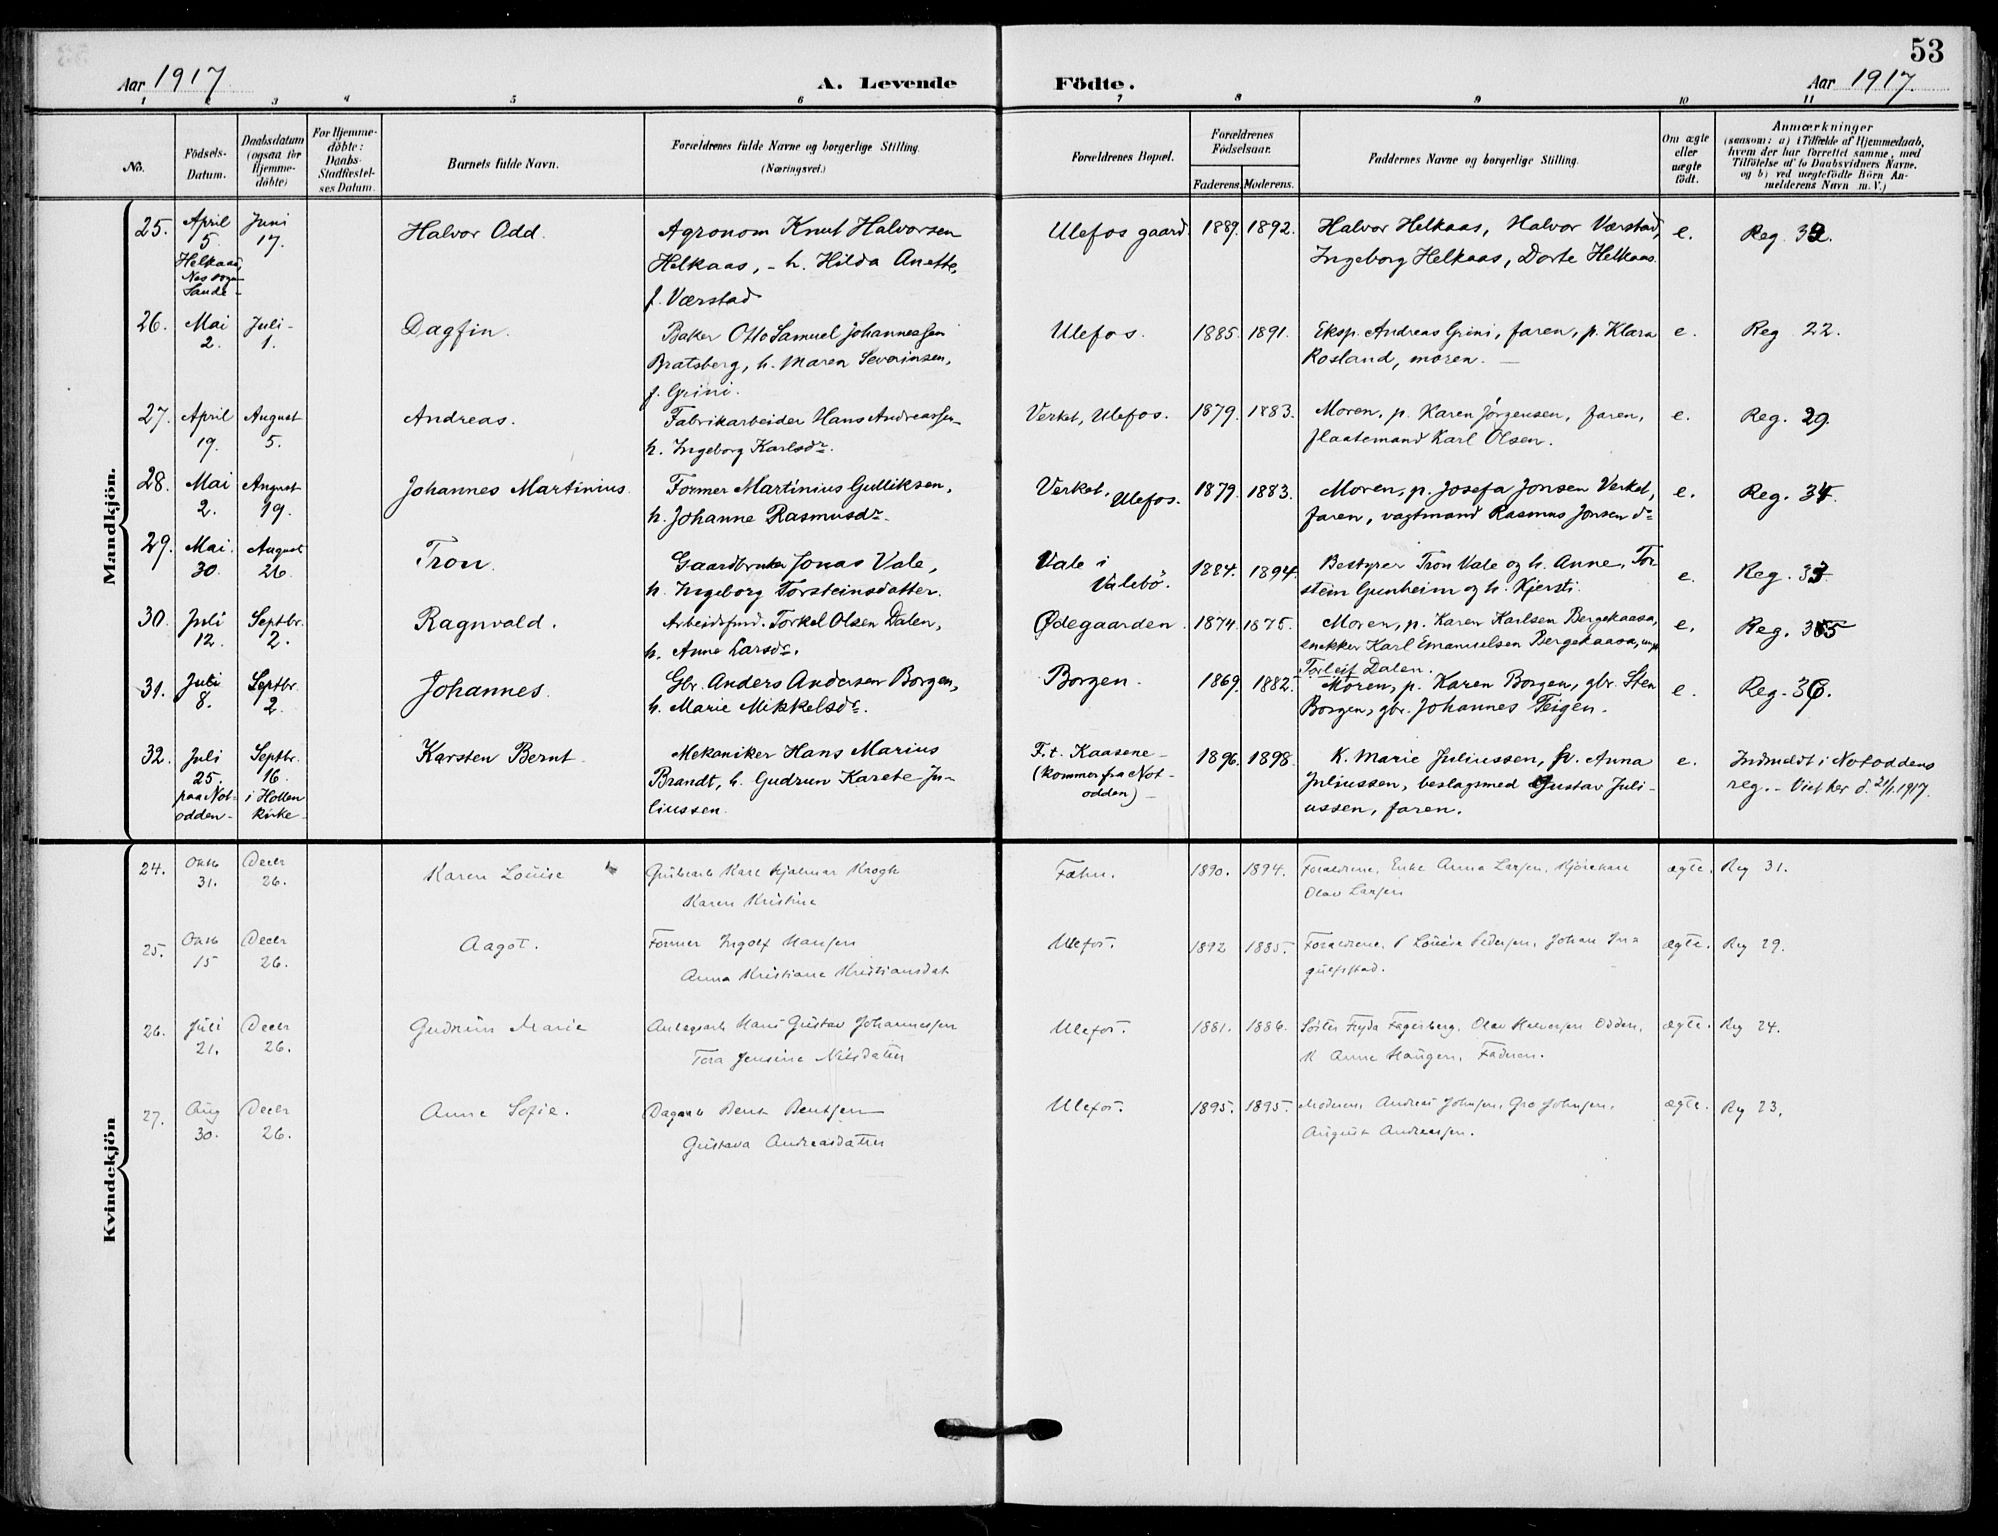 53
Aar 1917
A. Levende Födte.
Aar 1917.
1 2 3 4 5 6 7 8 9 10 11
No.
Födsels-
Datum.
Daabsdatum
(ogsaa for
Hjemme-
döbte)
For Hjemme-
döbte:
Daabs-
Stadfæstel-
ses Datum.
Barnets fulde Navn.
Forældrenes fulde Navne og borgerlige Stilling.
(Næringsvei.)
Forældrenes Bopæl.
Forældrenes
Födselsaar.
Faderens. Moderens.
Faddernes Navne og borgerlige Stilling.
Om ægte
eller
uægte
födt.
Anmærkninger
(saasom: a) i Tilfælde af Hjemmedaab,
hvem der har forrettet samme, med
Tilföielse af to Daabsvidners Navne.
og b) ved uægtefödte Börn An-
melderens Navn m. V.)
Mandkjön.
25. April 5. Helkaas, Sande - Juni 17. Halvor Odd. Agronom Knut Halvorsen Ulefos gaard. 1889. 1892. Halvor Helkaas, Halvor Værstad, e. Reg. 32.
Helkaas, - h. Hilda Anette, Ingeborg Helkaas, Dorte Helkaas.
f. Værstad
26. Mai 2. Juli - 1. Dagfin. Baker Otto Samuel Johannessen Ulefos. 1885. 1891. Eksp. Andreas Grini, faren, p. Klara e. Reg. 22.
Bratsberg, h. Maren Severinsen, Rosland, moren. -
f. Grini.
27. April 19. August 5. Andreas. Fabrikarbeider Hans Andreassen Verket, Ulefos. 1879. 1883. Moren, p. Karen Jörgensen, faren, e. Reg. 29.
h. Ingeborg Karlsdr. flaatemand Karl Olsen.
28. Mai 2. August 19. Johannes Martinius. Former Martinius Gulliksen, Verket, Ulefos. 1879. 1883. Moren, p. Josefa Jonsen Verket, e. Reg. 34.
h. Johanne Rasmusdr. faren, vagtmand Rasmus Jonsen do
29. Mai. 30. August 26. Tron. Gaardbruker Jonas Vale, Vale i Valebö. 1884. 1894. Bestyrer Tron Vale og h. Anne, Tor- e. Reg. 33.
h. Ingeborg Torsteinsdatter. stein Gunheim og h. Kjersti.
30. Juli 12. Septbr. 2. Ragnvald. Arbeidsfmd. Torkel Olsen Dalen, Ødegaarden. 1874. 1875. Moren, p. Karen Karlsen Bergekaasa, e. Reg. 35
h. Anne Larsdr. snekker Karl Emanuelsen Bergekaasa, ung.
Torleif Dalen.
31. Juli 8. Septbr. 2. Johannes. Gbr. Anders Andersen Borgen, Borgen. 1869. 1882. Moren, p. Karen Borgen, gbr. Sten e. Reg. 36.
h. Marie Mikkelsdr. Borgen, gbr. Johannes Teigen.
32. Juli 25. paa Not- odden - Septbr. 16. i Hollen kirke - Karsten Bernt. Mekaniker Hans Marius F. t. Kaasene - 1896. 1898. K. Marie Juliussen, p. Anna e. Indmeldt i Notoddens
Brandt, h. Gudrun Karete Ju- (kommer fra Not- Juliussen, beslagsmed Gustav Juli- reg. - Viet her d. 21/1. 1917.
liussen. odden) - ussen, faren.
Kvindekjön
24. Oktb 31. Decbr 26. Karen Louise Karl Hjalmar Krogh Fæhn. 1890. 1894. Forældrene, Enke Anna Larsen, ægte. Reg 31.
Karen Kristine Olav Larsen
25. Oktb 15 Decbr 26. Aagot. Former Ingolf Hansen Ulefos. 1892 1885. Forældrene, P Louise Pedersen, Johan ægte. Reg 29.
Anna Kristiane Kristiansdat
26. Juli 21. Decbr 26. Gudrun Marie Hans Gustav Johannessen Ulefos. 1881. 1886. Fagerberg, Olav Halvorsen Odden, ægte. Reg 24.
Tora Jensine Nilsdatter K Anne Haugen, Faderen.
27. Aug 30. Decbr 26. Anne Sofie. Dagarb Bent Bentsen Ulefos. 1895. 1895. Moderen, Andreas Johnsen, Gro Johnsen, ægte. Reg 23.
Gustava Andreasdatter August Andreassen.